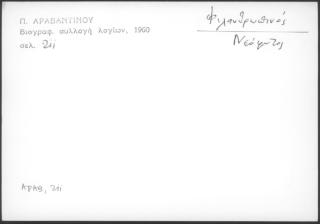 Π. ΑΡΑΒΑΝΤΙΝΟΥ
Βιογραφ. συλλογή λογίων, 1960
σελ. 211
Φιλανθρωπινός
Νεόφυτος
ΑΡΑΒ, 211